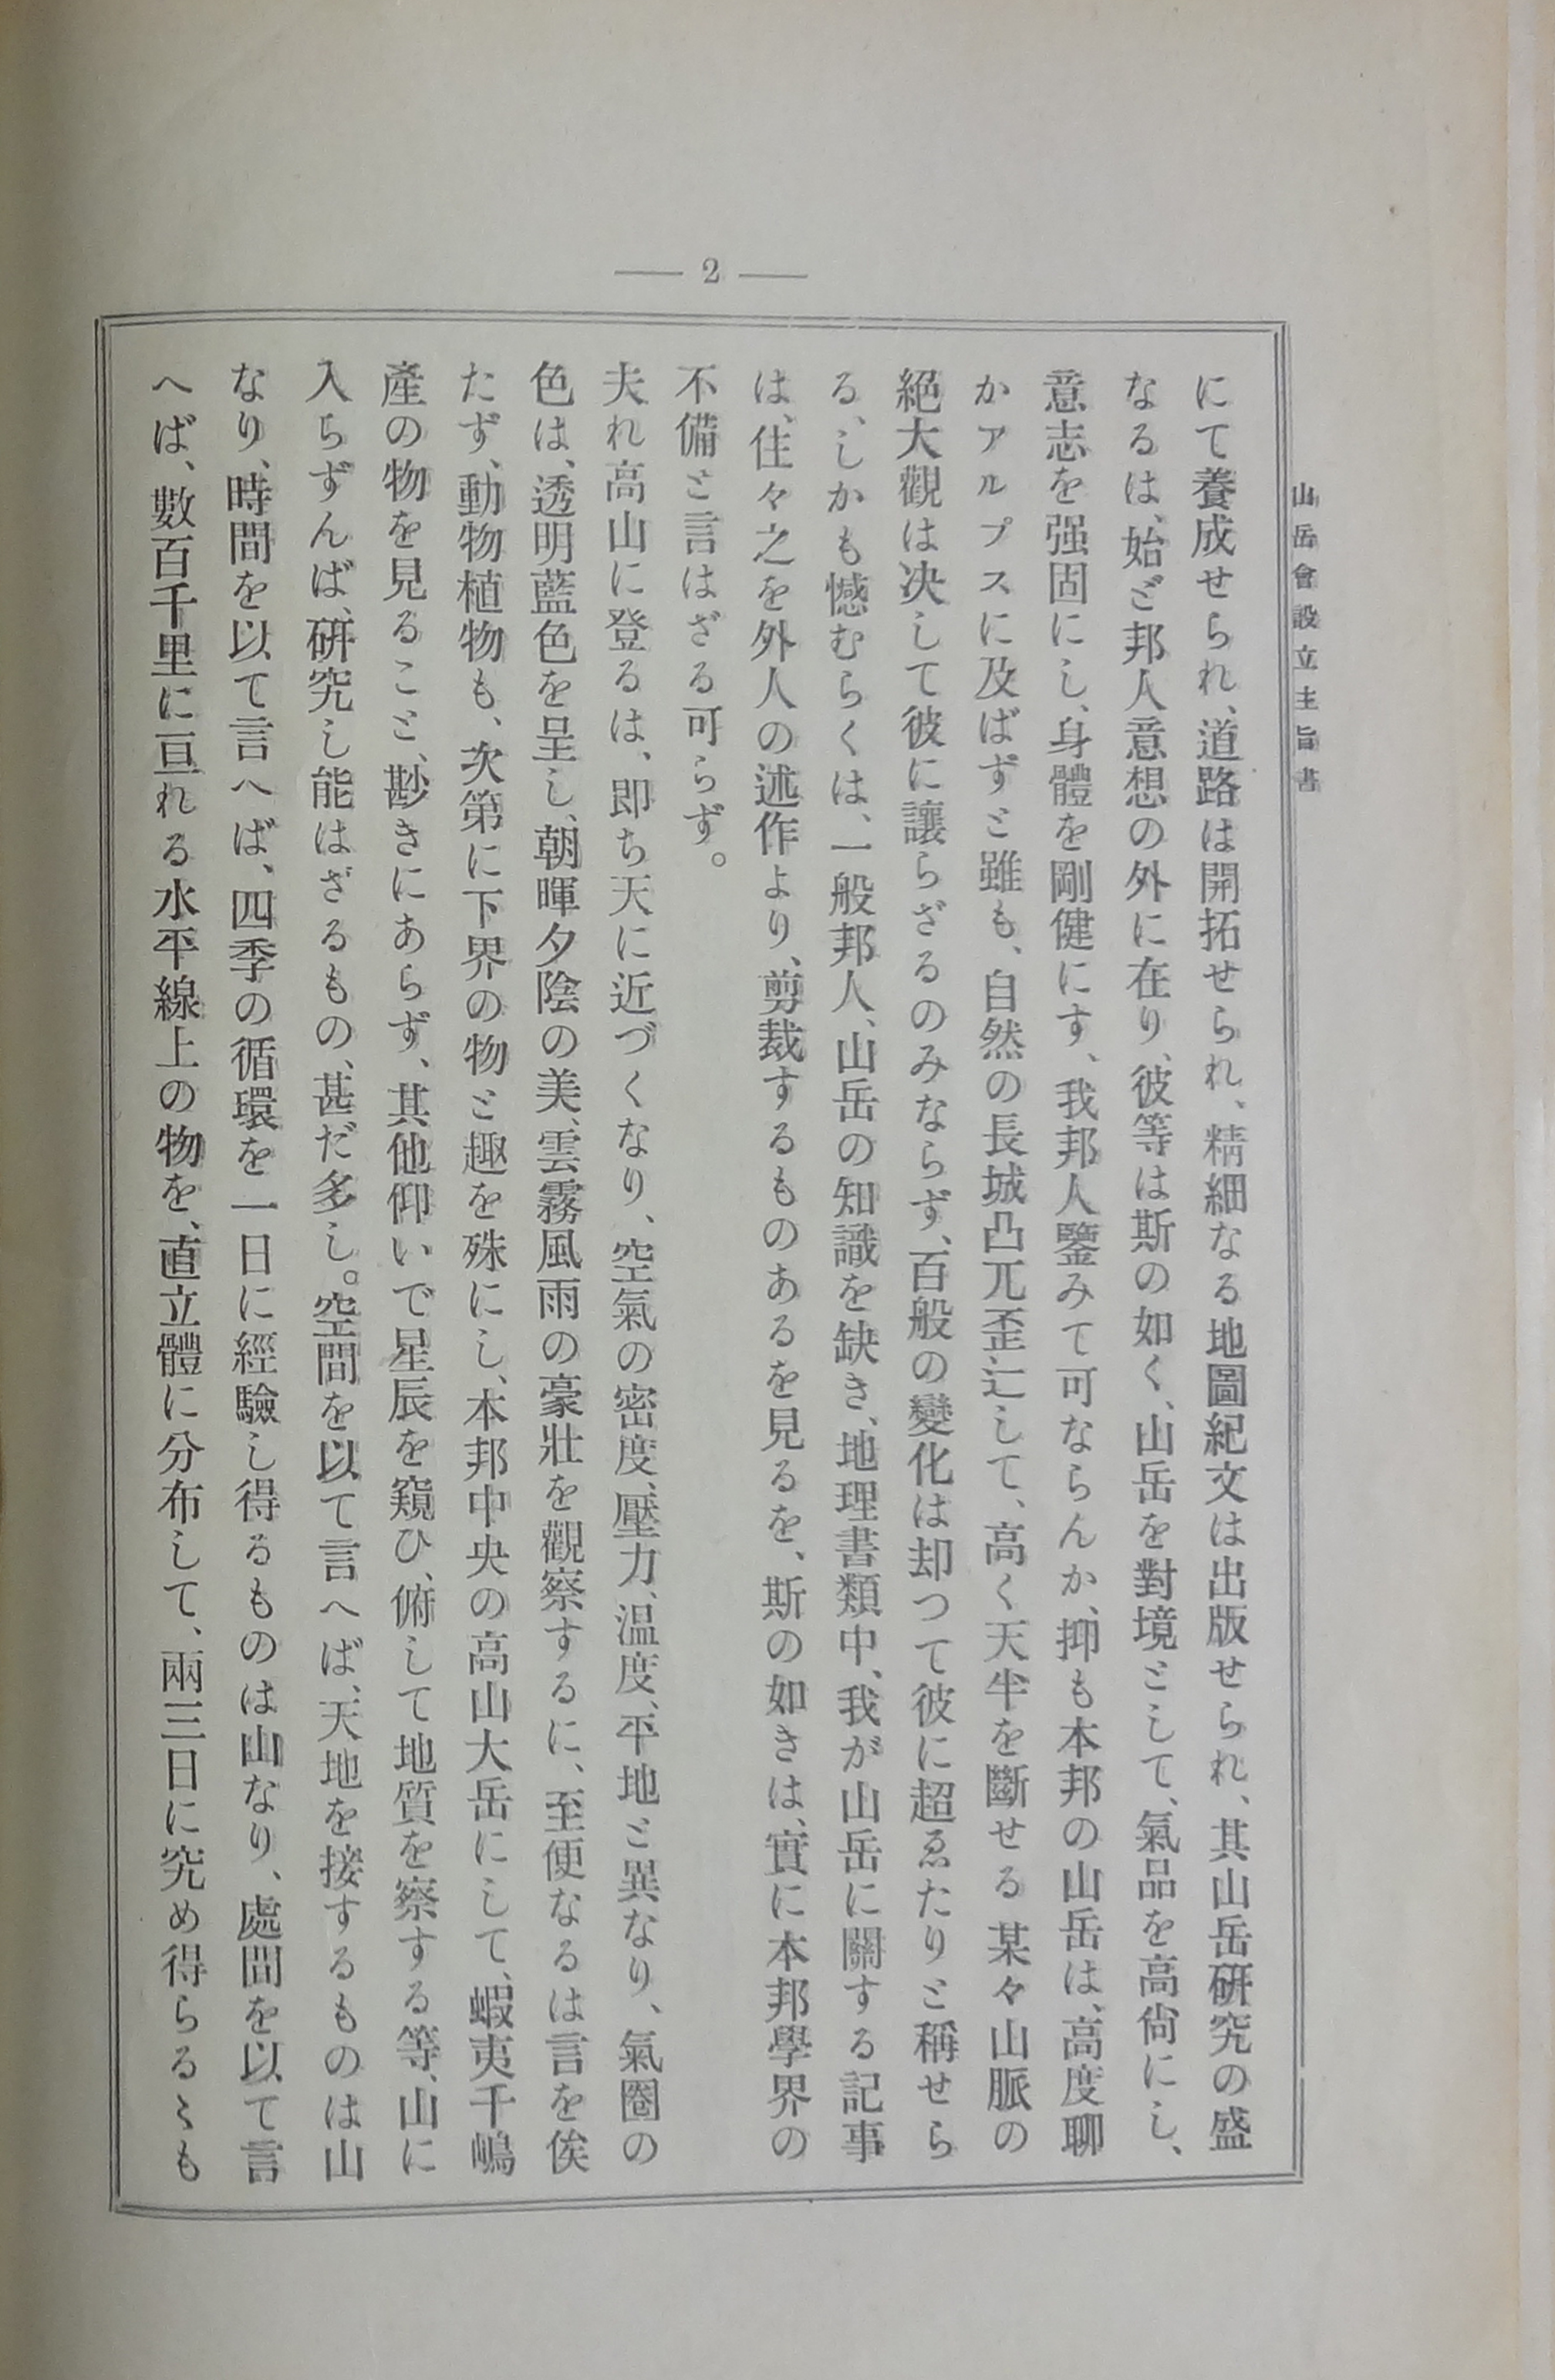 — 2 —
山岳會設立主旨書
にて養成せられ、道路は開拓せられ、精細なる地圖紀文は出版せられ、其山岳研究の盛
なるは、始ど邦人意想の外に在り、彼等は斯の如く、山岳を對境として、氣品を高尙にし、
意志を强固にし、身體を剛健にす、我邦人鑒みて可ならんか、抑も本邦の山岳は、高度聊
かアルプスに及ばずと雖も、自然の長城凸兀歪辷して、高く天半を斷せる某々山脈の
絕大觀は决して彼に讓らざるのみならず、百般の變化は却つて彼に超ゑたりと稱せら
る、しかも憾むらくは、一般邦人、山岳の知識を缺き、地理書類中、我が山岳に關する記事
は、住々之を外人の述作より、剪裁するものあるを見るを、斯の如きは、實に本邦學界の
不備と言はざる可らず。
夫れ高山に登るは、即ち天に近づくなり、空氣の密度、壓力、溫度、平地と異なり、氣圈の
色は、透明藍色を呈し、朝暉夕陰の美、雲霧風雨の豪壯を觀察するに、至便なるは言を俟
たず、動物植物も、次第に下界の物と趣を殊にし、本邦中央の高山大岳にして、蝦夷千嶋
產の物を見ること、尠きにあらず、其他仰いで星辰を窺ひ、俯して地質を察する等、山に
入らずんば、研究し能はざるもの、甚だ多し。空間を以て言へば、天地を接するものは山
なり、時間を以て言へば、四季の循環を一日に經驗し得るものは山なり、處間を以て言
へば、數百千里に亘れる水平線上の物を、直立體に分布して、兩三日に究め得らるゝも